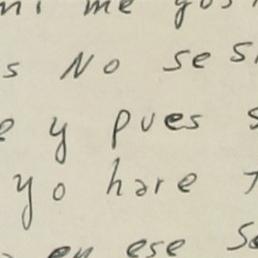 mi me gus
s No se s
e y pues s
yo hare
en ese se